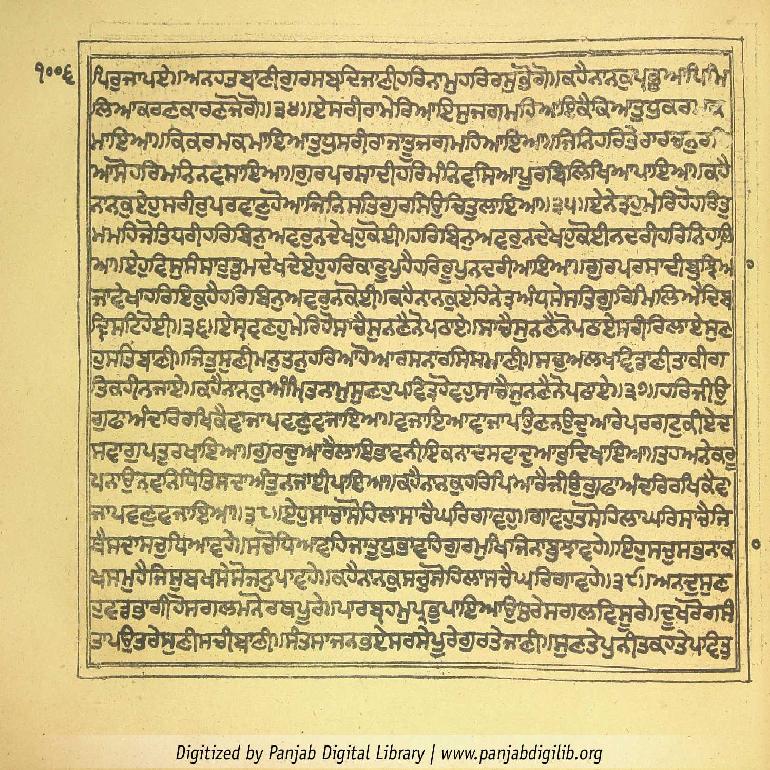 ੧੦੦੬
ਪਿਰੁਜਾਪਏ॥ਅਨਹਤਬਾਣੀਗੁਰਸਬਦਿਜਾਣੀਹਰਿਨਾਮੁਹਰਿਰਸੁਭੋਗੋ॥ਕਹੈਨਾਨਕੁਪ੍ਰਭੁਆਪਿਮਿ
ਲਿਆਕਰਣਕਾਰਣਜੋਗੋ॥੩੪॥ਏਸਰੀਰਾਮੇਰਿਆਇਸੁਜਗਮਹਿਆਇਕੈਕਿਆਤੁਧੁਕਰਮ
ਮਾਇਆ॥ਕਿਕਰਮਕਮਾਇਆਤੁਧੁਸਰੀਰਾਜਾਤੂਜਗਮਹਿਆਇਆ॥ਜਿਨਿਹਰਿਤੇਰਾਰਚਨੁਰਚਿ
ਆਸੋਹਰਿਮਨਿਨਵਸਾਇਆ॥ਗੁਰਪਰਸਾਦੀਹਰਿਮੰਨਿਵਸਿਆਪੂਰਬਿਲਿਖਿਆਪਾਇਆ॥ਕਹੈ
ਨਾਨਕੁਏਹੁਸਰੀਰੁਪਰਵਾਣੁਹੋਆਜਿਨਿਸਤਿਗੁਰਸਿਉਚਿਤੁਲਾਇਆ॥੩੫॥ਏਨੇਤ੍ਰਹੁਮੇਰਿਹੋਹਰਿਤੁ
ਮਮਹਿਜੋਤਿਧਰੀਹਰਿਬਿਨੁਅਵਰੁਨਦੇਖਹੁਕੋਈ॥ਹਰਿਬਿਨੁਅਵਰੁਨਦੇਖਹੁਕੋਈਨਦਰੀਹਰਿਨਿਹਾਲਿ
ਆ॥ਏਹੁਵਿਸੁਸੰਸਾਰੁਤੁਮਦੇਖਦੇਏਹੁਹਰਿਕਾਰੂਪੁਹੈਹਰਿਰੂਪੁਨਦਰੀਆਇਆ॥ਗੁਰਪਰਸਾਦੀਬੁਝਿਆ
ਜਾਵੇਖਾਹਰਿਇਕੁਹੈਹਰਿਬਿਨੁਅਵਰੁਨਕੋਈ॥ਕਹੈਨਾਨਕੁਏਹਿਨੇਤ੍ਰਅੰਧਸੇਸਤਿਗੁਰਿਮਿਲਿਐਦਿਬ
ਦ੍ਰਿਸਟਿਹੋਈ॥੩੬॥ਏਸ੍ਰਵਣਹੁਮੇਰਿਹੋਸਾਚੈਸੁਨਣੈਨੋਪਠਾਏ॥ਸਾਚੈਸੁਨਣੈਨੋਪਠਾਏਸਰੀਰਿਲਾਏਸੁਣ
ਹੁਸਤਿਬਾਣੀ॥ਜਿਤੁਸੁਣੀਮਨੁਤਨੁਹਰਿਆਹੋਆਰਸਨਾਰਸਿਸਮਾਣੀ॥ਸਚੁਅਲਖਵਿਡਾਣੀਤਾਕੀਗ
ਤਿਕਹੀਨਜਾਏ॥ਕਹੈਨਾਨਕੁਅੰਮ੍ਰਿਤਨਾਮੁਸੁਣਹੁਪਵਿਤ੍ਰਹੋਵਹੁਸਾਚੈਸੁਨਣੈਨੋਪਠਾਏ॥੩੭॥ਹਰਿਜੀਉ
ਗੁਫਾਅੰਦਰਿਰਖਿਕੈਵਾਜਾਪਵਣੁਵਜਾਇਆ॥ਵਜਾਇਆਵਾਜਾਪਉਣਨਉਦੁਆਰੇਪਰਗਟੁਕੀਏਦ
ਸਵਾਗੁਪਤੁਰਖਾਇਆ॥ਗੁਰਦੁਆਰੈਲਾਇਭਾਵਨੀਇਕਨਾਦਸਵਾਦੁਆਰੁਦਿਖਾਇਆ॥ਤਹਅਨੇਕਰੂ
ਪਨਾਉਨਵਨਿਧਿਤਿਸਦਾਅੰਤੁਨਜਾਈਪਾਇਆ॥ਕਹੈਨਾਨਕੁਹਰਿਪਿਆਰੈਜੀਉਗੁਫਾਅੰਦਰਿਰਖਿਕੈਵਾ
ਜਾਪਵਣੁਵਜਾਇਆ॥੩੮॥ਏਹੁਸਾਚਾਸੋਹਿਲਾਸਾਚੈਘਰਿਗਾਵਹੁ॥ਗਾਵਹੁਤਸੋਹਿਲਾਘਰਿਸਾਚੈਜਿ
ਥੈਸਦਾਸਚੁਧਿਆਵਹੇ॥ਸਚੋਧਿਆਵਹਿਜਾਤੁਧੁਭਾਵਹਿਗੁਰਮੁਖਿਜਿਨਾਬੁਝਾਵਹੇ॥ਇਹੁਸਚੁਸਭਨਾਕਾ
ਖਸਮੁਹੈਜਿਸੁਬਖਸੇਸੋਜਨੁਪਾਵਹੇ॥ਕਹੈਨਾਨਕੁਸਚੁਸੋਹਿਲਾਸਚੈਘਰਿਗਾਵਹੇ॥੩੯॥ਅਨਦੁਸੁਣ
ਹੁਵਡਭਾਗੀਹੋਸਗਲਮਨੋਰਥਪੂਰੇ॥ਪਾਰਬ੍ਰਹਮੁਪ੍ਰਭੁਪਾਇਆਉਤਰੇਸਗਲਵਿਸੂਰੇ॥ਦੂਖਰੋਗਸੰ
ਤਾਪਉਤਰੇਸੁਣੀਸਚੀਬਾਣੀ॥ਸੰਤਸਾਜਨਭਏਸਰਸੇਪੂਰੇਗੁਰਤੇਜਾਣੀ॥ਸੁਣਤੇਪੁਨੀਤਕਹਤੇਪਵਿਤੁ
Digitized by Panjab Digital Library | www.panjabdigilib.org